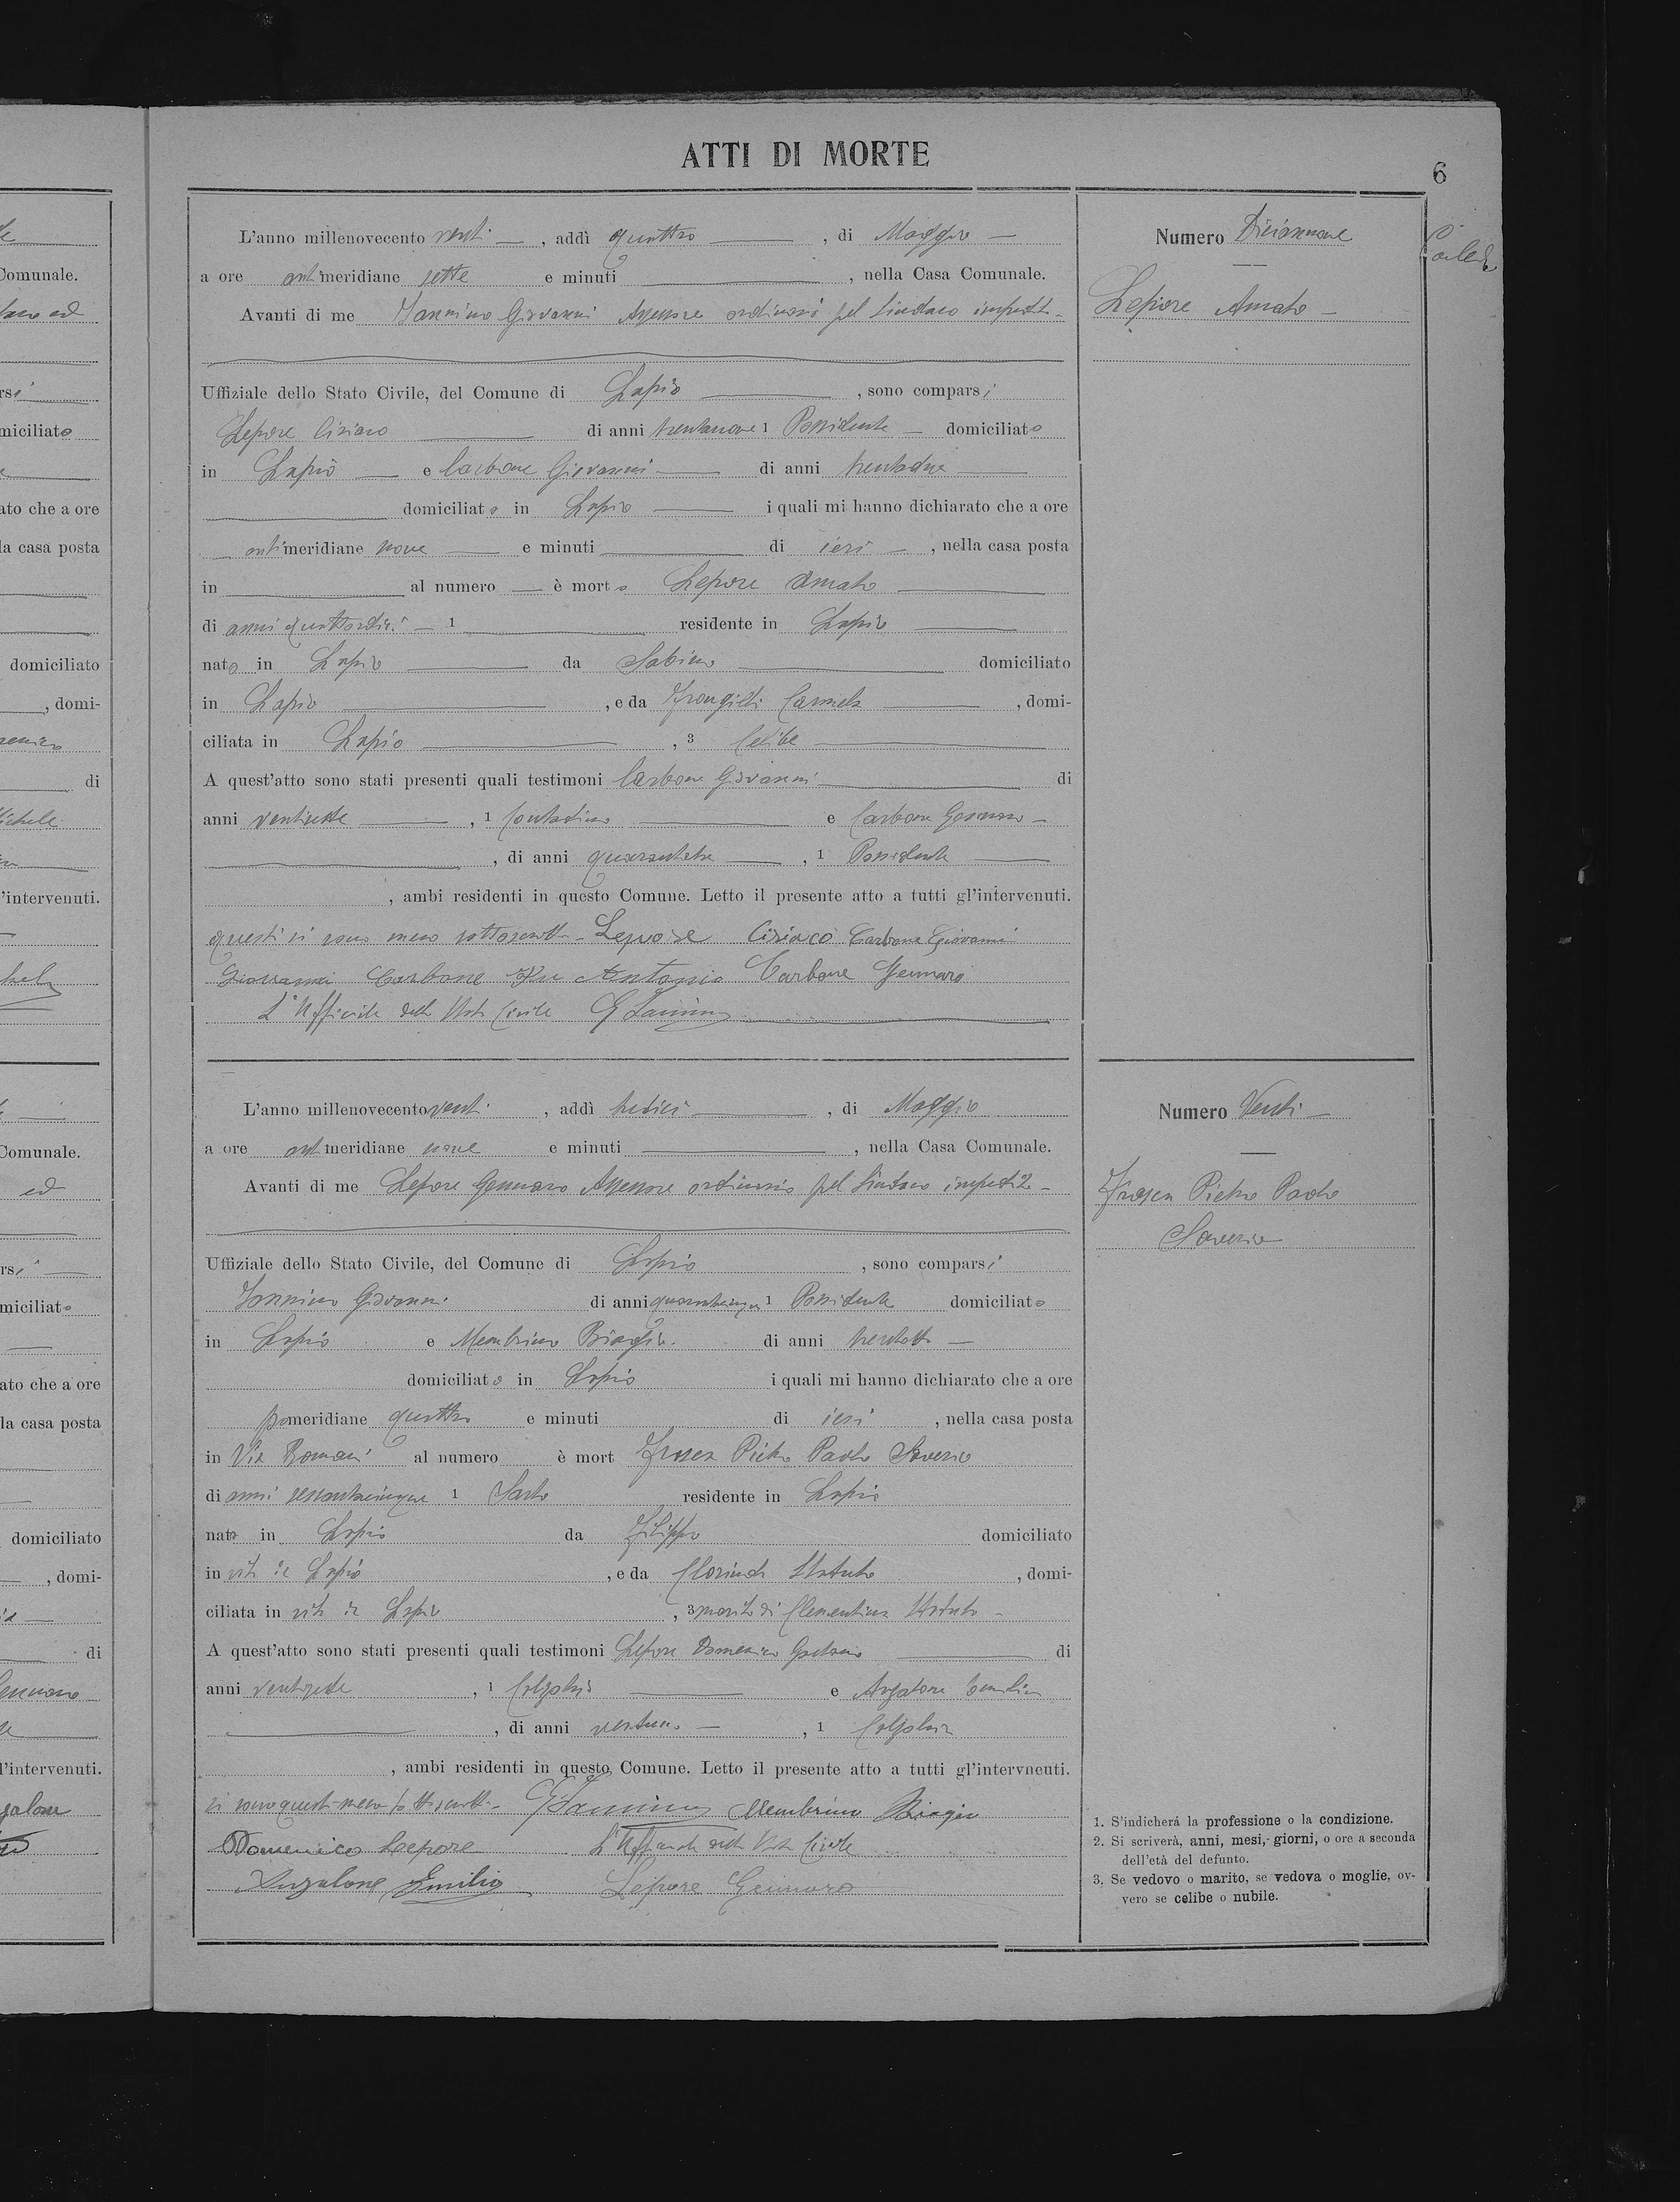 ATTI DI MORTE
6
L'anno millenovecento venti, addì quattro, di Maggio
a ore antimeridiane sette e minuti, nella Casa Comunale.
Avanti di me Iannino Giovanni Assessore ordinario pel Sindaco impedito
Uffiziale dello Stato Civile, del Comune di Lapio, sono comparsi
Lepore Ciriaco di anni trentanove 1 Possidente domiciliato
in Lapio e Carbone Giovanni di anni trentadue
domiciliato in Lapio i quali mi hanno dichiarato che a ore
antimeridiane nove e minuti di ieri, nella casa posta
in al numero è morto Lepore Amato
di anni quattordici 1 residente in Lapio
nato in Lapio da Sabino domiciliato
in Lapio, e da Frongilli Carmela, domi-
ciliata in Lapio, 3 Celibe
A quest'atto sono stati presenti quali testimoni Carbone Giovanni di
anni ventisette, 1 Contadino e Carbone Gennaro
, di anni quarantatre, 1 Possidente
, ambi residenti in questo Comune. Letto il presente atto a tutti gl'intervenuti.
questi si sono meco sottoscritti - Lepore Ciriaco Carbone Giovanni
Giovanni Carbone Fu Antonio Carbone Gennaro
L'Ufficiale dello Stato Civile G Iannino
Numero Diciannove
Lepore Amato
L'anno millenovecento venti, addì tredici, di Maggio
a ore antimeridiane nove e minuti, nella Casa Comunale.
Avanti di me Lepore Gennaro Assessore ordinario pel Sindaco impedito
Uffiziale dello Stato Civile, del Comune di Lapio, sono comparsi
Iannino Giovanni di anni quarantacinque 1 Possidente domiciliato
in Lapio e Membrino Biagio di anni trentotto
domiciliato in Lapio i quali mi hanno dichiarato che a ore
pomeridiane quattro e minuti di ieri, nella casa posta
in Via Romani al numero è mort Pietro Paolo Saverio
di anni sessantacinque 1 Sarto residente in Lapio
nato in Lapio da Filippo domiciliato
in vita in Lapio, e da Clorinda Statuto, domi-
ciliata in vita in Lapio, 3 marito di Clementina Statuto
A quest'atto sono stati presenti quali testimoni Lepore Domenico Gaetano di
anni ventisette, 1 Calzolaio e Anzalone Emilio
, di anni ventuno, 1 Calzolaio
, ambi residenti in questo Comune. Letto il presente atto a tutti gl'intervneuti.
si sono questi meco sottoscritti - G Iannino Membrino Biagio
Domenico Lepore L'Ufficiale dello Stato Civile
Anzalone Emilio Lepore Gennaro
Numero Venti
Pietro Paolo
Saverio
1. S'indicherà la professione o la condizione.
2. Si scriverà, anni, mesi, giorni, o ore a seconda
dell'età del defunto.
3. Se vedovo o marito, se vedova o moglie, ov-
vero se celibe o nubile.
Comunale.
miciliato
ato che a ore
la casa posta
domiciliato
, domi-
di
l'intervenuti.
Comunale.
ed
miciliato
ato che a ore
la casa posta
domiciliato
, domi-
di
l'intervenuti.